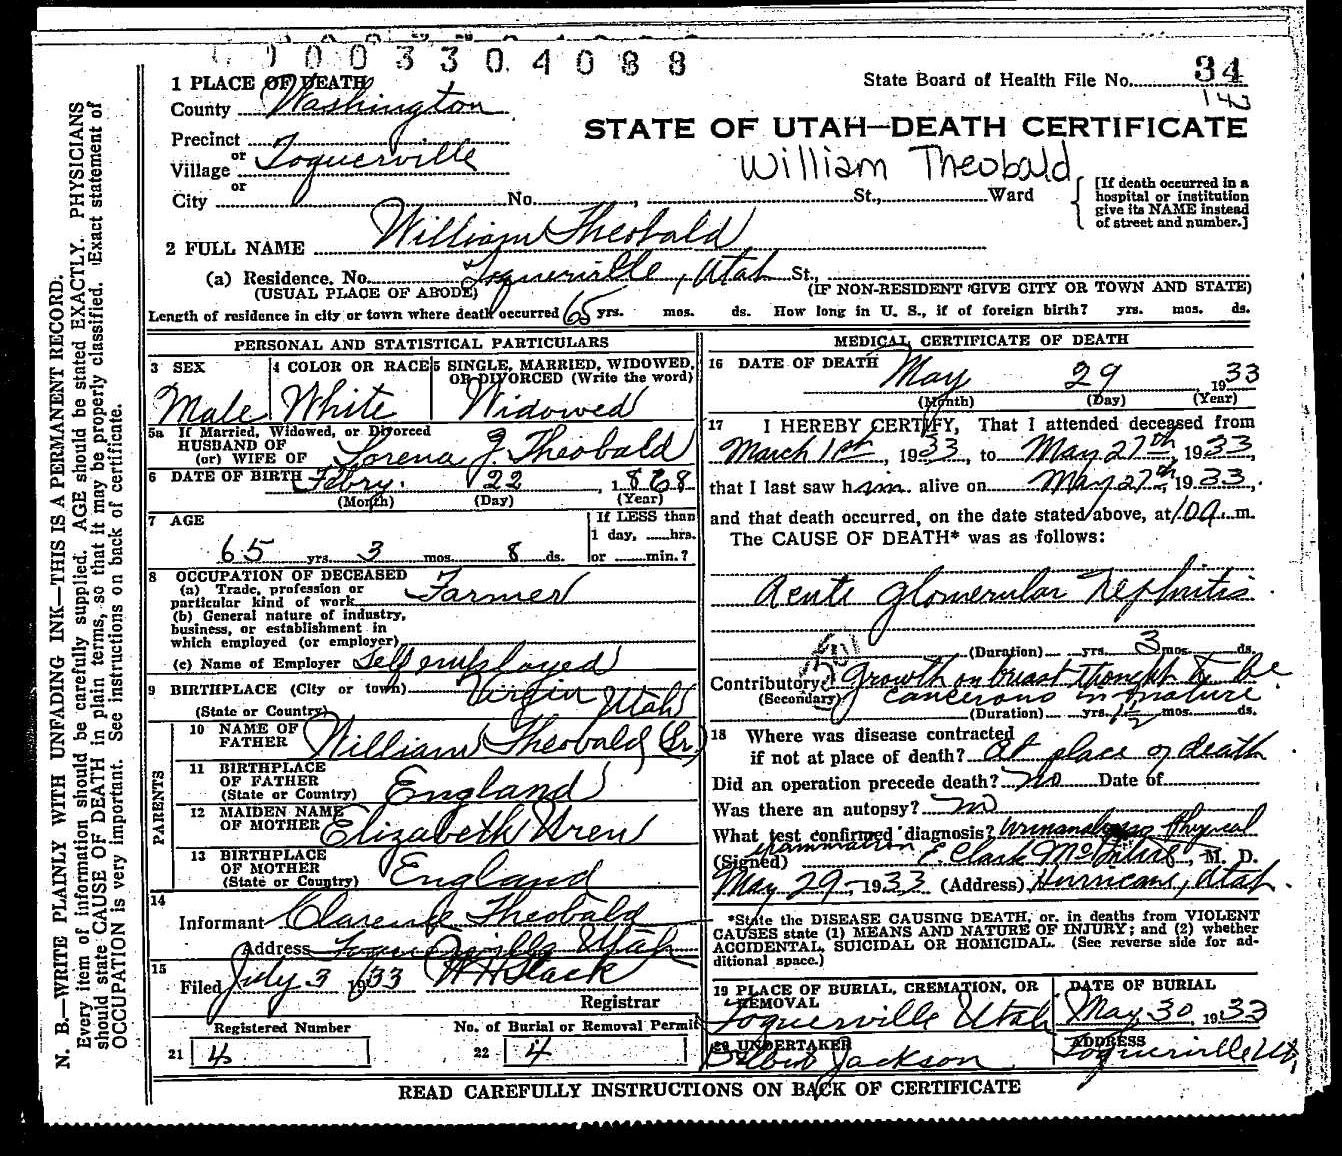 000330.4088
State Board of Health File No. 34
143
1 PLACE OF DEATH
County Washington
STATE OF UTAH—DEATH CERTIFICATE
Precinct
or
Village Toquerville
William Theobald
or
City No. , St., Ward
[If death occurred in a hospital or institution give its NAME instead of street and number.]
2 FULL NAME William Theobald
(a) Residence. No. Toquerville, Utah St.,
(USUAL PLACE OF ABODE) (IF NON-RESIDENT GIVE CITY OR TOWN AND STATE)
Length of residence in city or town where death occurred 65 yrs. mos. ds. How long in U. S., if of foreign birth? yrs. mos. ds.
PERSONAL AND STATISTICAL PARTICULARS
3 SEX
Male
4 COLOR OR RACE
White
5 SINGLE, MARRIED, WIDOWED,
OR DIVORCED (Write the word)
Widowed
5a If Married, Widowed, or Divorced
HUSBAND OF
(or) WIFE OF Lorena J. Theobald
6 DATE OF BIRTH Febry. 22, 1868
(Month) (Day) (Year)
7 AGE
65 yrs. 3 mos. 8 ds.
If LESS than
1 day, hrs.
or min.?
8 OCCUPATION OF DECEASED
(a) Trade, profession or
particular kind of work Farmer
(b) General nature of industry,
business, or establishment in
which employed (or employer)
(c) Name of Employer Self employed
9 BIRTHPLACE (City or town) Virgin Utah
(State or Country)
PARENTS
10 NAME OF
FATHER William Theobald Sr.
11 BIRTHPLACE
OF FATHER
(State or Country) England
12 MAIDEN NAME
OF MOTHER Elizabeth Wren
13 BIRTHPLACE
OF MOTHER
(State or Country) England
14
Informant Clarence Theobald
Address Toquerville Utah
15
Filed July 3 1933 W H Slack
Registrar
Registered Number
21 4
No. of Burial or Removal Permit
22 4
MEDICAL CERTIFICATE OF DEATH
16 DATE OF DEATH May 29, 1933
(Month) (Day) (Year)
17 I HEREBY CERTIFY, That I attended deceased from
March 1st, 1933, to May 27th, 1933,
that I last saw him alive on May 27th, 1933,
and that death occurred, on the date stated above, at 10 a.m.
The CAUSE OF DEATH* was as follows:
Acute glomerular Nephritis
(Duration) yrs. 3 mos. ds.
Contributory Growth on breast thought to be
(Secondary) cancerous in nature.
(Duration) yrs. mos. ds.
18 Where was disease contracted
if not at place of death? At place of death
Did an operation precede death? no Date of
Was there an autopsy? no
What test confirmed diagnosis? Urinanalysis Physical
examination
(Signed) E. Clark McIntire, M. D.
May 29, 1933 (Address) Hurricane, Utah.
*State the DISEASE CAUSING DEATH, or, in deaths from VIOLENT
CAUSES state (1) MEANS AND NATURE OF INJURY; and (2) whether
ACCIDENTAL, SUICIDAL OR HOMICIDAL. (See reverse side for ad-
ditional space.)
19 PLACE OF BURIAL, CREMATION, OR
REMOVAL
Toquerville Utah
DATE OF BURIAL
May 30, 1933
20 UNDERTAKER
Jackson
ADDRESS
Toquerville Ut,
READ CAREFULLY INSTRUCTIONS ON BACK OF CERTIFICATE
N. B.—WRITE PLAINLY WITH UNFADING INK—THIS IS A PERMANENT RECORD.
Every item of information should be carefully supplied. AGE should be stated EXACTLY. PHYSICIANS
should state CAUSE OF DEATH in plain terms, so that it may be properly classified. Exact statement of
OCCUPATION is very important. See instructions on back of certificate.